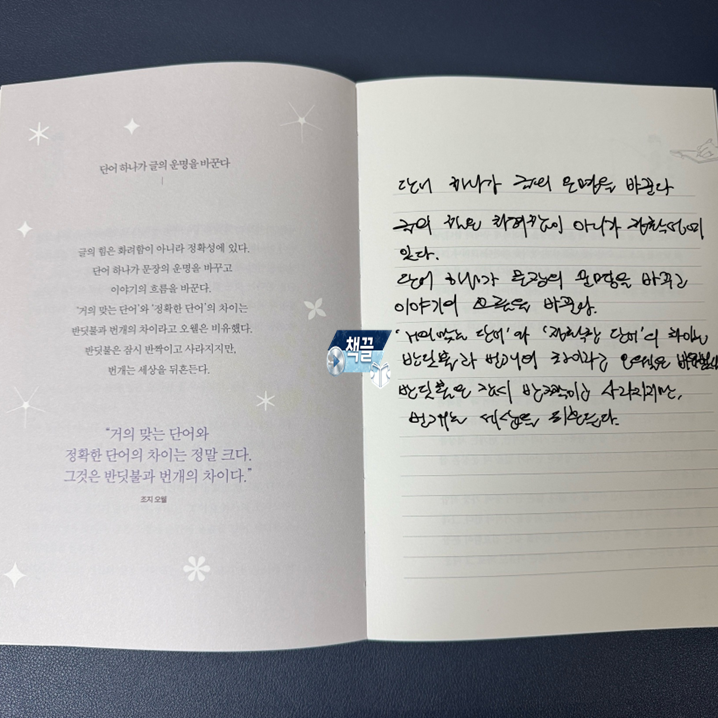 단어 하나가 글의 운명을 바꾼다
글의 힘은 화려함이 아니라 정확성에 있다.
단어 하나가 문장의 운명을 바꾸고
이야기의 흐름을 바꾼다.
'거의 맞는 단어'와 '정확한 단어'의 차이는
반딧불과 번개의 차이라고 오웰은 비유했다.
반딧불은 잠시 반짝이고 사라지지만,
번개는 세상을 뒤흔든다.
"거의 맞는 단어와
정확한 단어의 차이는 정말 크다.
그것은 반딧불과 번개의 차이다."
조지 오웰
책끌
단어 하나가 글의 운명을 바꾼다
글의 힘은 화려함이 아니라 정확성에
있다.
단어 하나가 문장의 운명을 바꾸고
이야기의 흐름을 바꾼다.
'거의 맞는 단어'와 '정확한 단어'의 차이는
반딧불과 번개의 차이라고 오웰은
반딧불은 잠시 반짝이고 사라지지만,
번개는 세상을 뒤흔든다.